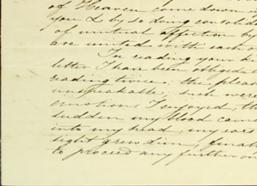 of Heaven come down
you & by so doing consolid
of mutual affection by
are united with each o
In reading your k
letter I have been obliged
reading twice, the pleas
unspeakable, such were
emotions I enjoyed, th
sudden my blood came
into my head, my ears
sight grew dim, finall
to proceed any further on